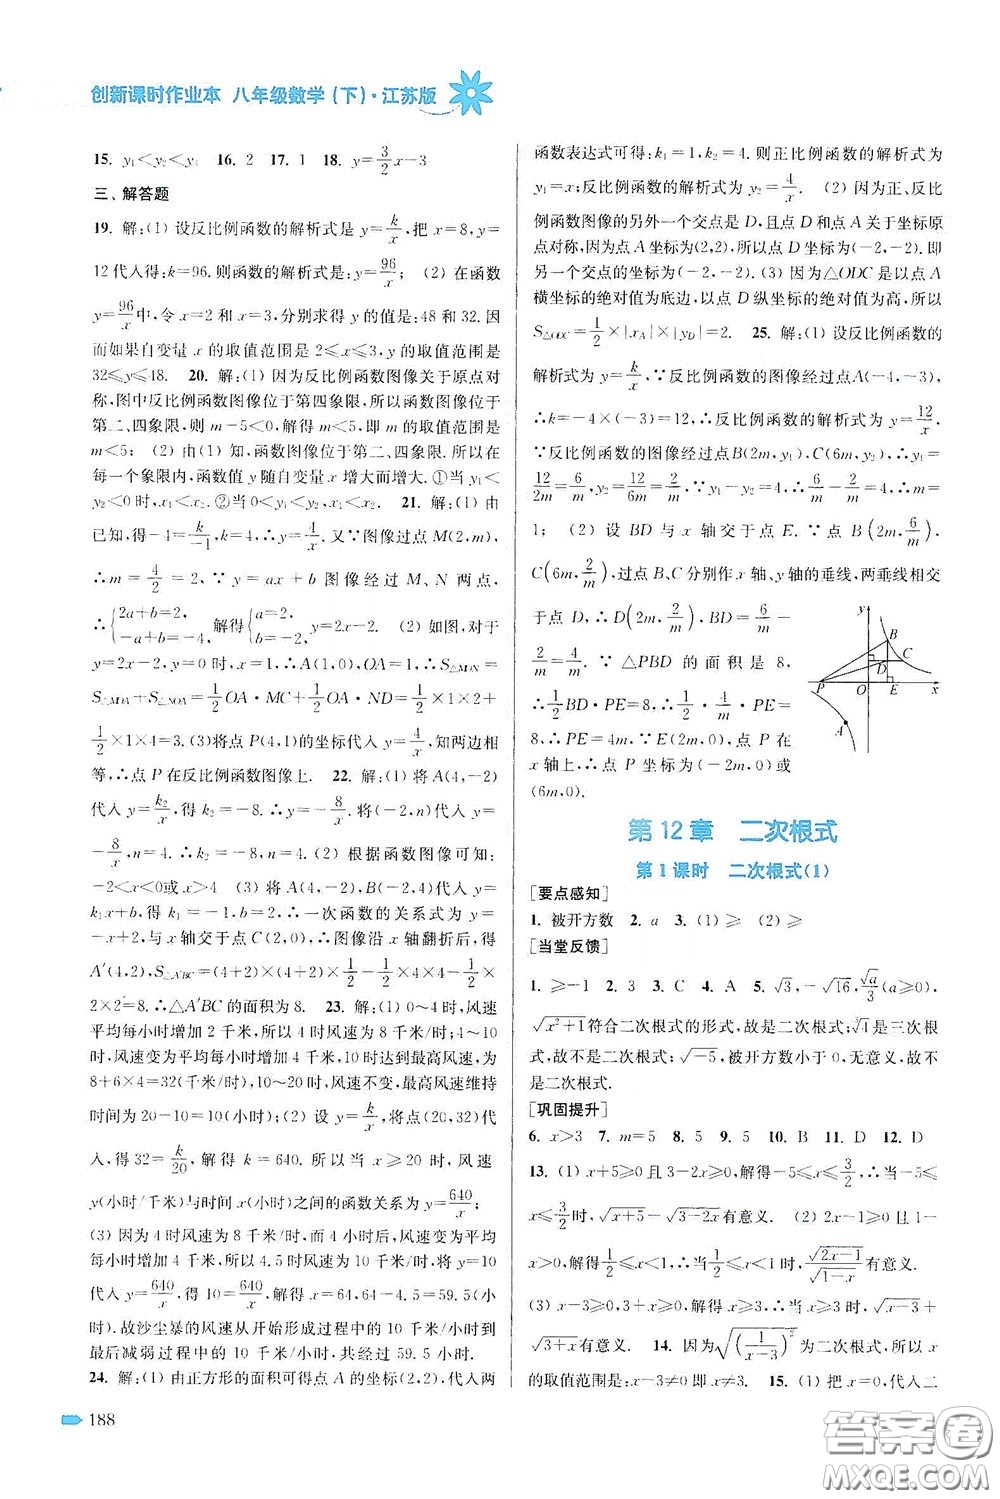 创新课时作业本 八年级数学(下)·江苏版
15. y₁<y₂<y₃ 16. 2 17. 1 18. y=3/2x-3
三、解答题
19. 解:(1) 设反比例函数的解析式是 y=k/x,把 x=8,y=
12代入得:k=96.则函数的解析式是:y=96/x; (2) 在函数
y=96/x中,令 x=2和 x=3,分别求得 y的值是:48和32.因
而如果自变量 x 的取值范围是 2≤x≤3,y的取值范围是
32≤y≤48. 20. 解:(1) 因为反比例函数图像关于原点对
称,图中反比例函数图像位于第四象限,所以函数图像位于
第二、四象限.则 m-5<0,解得 m<5,即 m 的取值范围是
m<5; (2) 由(1) 知,函数图像位于第二、四象限.所以在
每一个象限内,函数值 y 随自变量 x 增大而增大.①当 y₁<
y₂<0时,x₁<x₂.②当0<y₁<y₂,x₁<x₂. 21. 解:(1) 由
已知,得-4=k/-1,k=4,∴y=4/x. 又∵图像过点 M(2,m),
∴m=4/2=2. ∵y=ax+b 图像经过 M、N 两点,
∴{2a+b=2, -a+b=-4, 解得{a=2, b=-2, y=2x-2. (2) 如图,对于
y=2x-2,y=0时,x=1,∴A(1,0),OA=1,∴S△MON=
S△MOA+S△NOA=1/2OA·MC+1/2OA·ND=1/2×1×2+
1/2×1×4=3.(3)将点 P(4,1)的坐标代入 y=4/x,知两边相
等,∴点 P 在反比例函数图像上. 22. 解:(1) 将A(4,-2)
代入 y=k₂/x,得 k₂=-8.∴y=-8/x. 将(-2,n)代入 y=
-8/x,n=4.∴k₂=-8,n=4. (2) 根据函数图像可知:
-2<x<0或x>4 (3)将A(4,-2),B(-2,4)代入 y=
k₁x+b,得 k₁=-1,b=2.∴一次函数的关系式为 y=
-x+2,与 x 轴交于点 C(2,0),∴图像沿 x 轴翻折后,得
A′(4,2),S△A′BC=(4+2)×(4+2)×1/2-1/2×4×4-1/2×
2×2=8.∴△A′BC的面积为 8. 23. 解:(1) 0~4 时,风速
平均每小时增加 2 千米,所以 4 时风速为 8 千米/时;4~10
时,风速变为平均每小时增加 4 千米,10 时达到最高风速,为
8+6×4=32(千米/时),10~20时,风速不变,最高风速维持
时间为20-10=10(小时);(2) 设 y=k/x,将点(20,32)代
入,得 32=k/20,解得 k=640. 所以当 x≥20 时,风速
y(小时/千米)与时间 x(小时)之间的函数关系为 y=640/x;
(3) 因为 4 时风速为 8 千米/时,而 4 小时后,风速变为平均
每小时增加 4 千米/时,所以 4.5 时风速为 10 千米/时,将 y=10
代入 y=640/x,得 10=640/x,解得 x=64,64-4.5=59.5(小
时).故沙尘暴的风速从开始形成过程中的 10 千米/小时到
最后减弱过程中的 10 千米/小时,共经过 59.5 小时.
24. 解:(1) 由正方形的面积可得点 A 的坐标(2,2),代入两
函数表达式可得:k₁=1,k₂=4.则正比例函数的解析式为
y₁=x;反比例函数的解析式为 y₂=4/x. (2) 因为正、反比
例函数图像的另外一个交点是 D,且点 D和点 A 关于坐标原
点对称,因为点 A坐标为(2,2),所以点 D坐标为(-2,-2).即
另一个交点的坐标为(-2,-2).(3) 因为△ODC是以点 A
横坐标的绝对值为底边,以点 D纵坐标的绝对值为高,所以
S△ODC=1/2×|xA|×|yD|=2. 25. 解:(1) 设反比例函数的
解析式为 y=k/x,∵反比例函数的图像经过点A(-4,-3),
∴k=-4×(-3)=12,∴反比例函数的解析式为 y=12/x,
∵反比例函数的图像经过点B(2m,y₁),C(6m,y₂),∴y₁=
12/2m=6/m,y₂=12/6m=2/m,∵y₁-y₂=4,∴6/m-2/m=4,∴m=
1; (2) 设 BD 与 x 轴交于点 E.∵点 B(2m,6/m),
C(6m,2/m),过点B、C分别作x轴、y轴的垂线,两垂线相交
于点 D,∴D(2m,2/m),BD=6/m-
2/m=4/m.∵△PBD 的面积是 8,
∴1/2BD·PE=8,∴1/2·4/m·PE=
8,∴PE=4m,∵E(2m,0),点P在
x轴上,∴点P坐标为(-2m,0)或
(6m,0).
y
B
D
C
P
O
E
x
A
第12章 二次根式
第1课时 二次根式(1)
[要点感知]
1. 被开方数 2. a 3. (1) ≥ (2) ≥
[当堂反馈]
1. ≥-1 2. 3 3. C 4. A 5. √3,-√16,√a/3(a≥0),
√x²+1符合二次根式的形式,故是二次根式;∛4是三次根
式,故不是二次根式;√-5,被开方数小于 0,无意义,故不
是二次根式.
[巩固提升]
6. x>3 7. m=5 8. 5 9. 5 10. B 11. D 12. D
13. (1) x+5≥0且3-2x≥0,解得-5≤x≤3/2,∴当-5≤
x≤3/2时,√x+5-√3-2x有意义. (2) 2x-1≥0 且 1-
x>0,解得1/2≤x<1,∴当1/2≤x<1时,√2x-1/√1-x有意义.
(3) x-3≥0,3+x≥0,解得x≥3,∴当 x≥3时,√x-3+
√3+x有意义. 14. 因为√(1/x-3)²为二次根式,所以 x
的取值范围是:x-3≠0即x≠3. 15. (1) 把 x=8代入二
188
答案圈
MXQE.COM